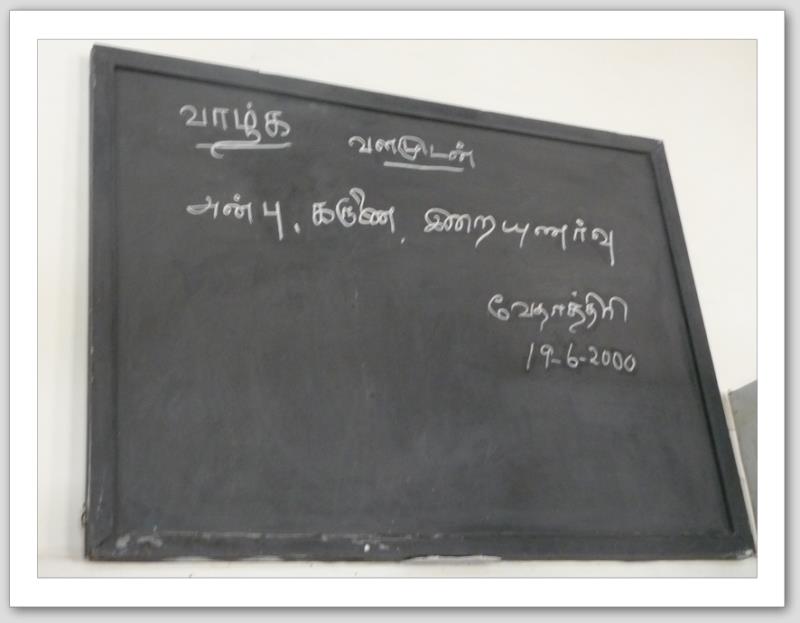 வாழ்க வளமுடன்
அன்பு, கருணை, இறையுணர்வு
வேதாத்திரி
19-6-2000